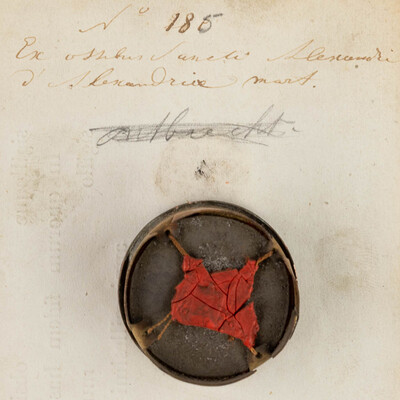 N° 185
Ex ossibus Sancti Alexandri
d'Alexandrie mart.